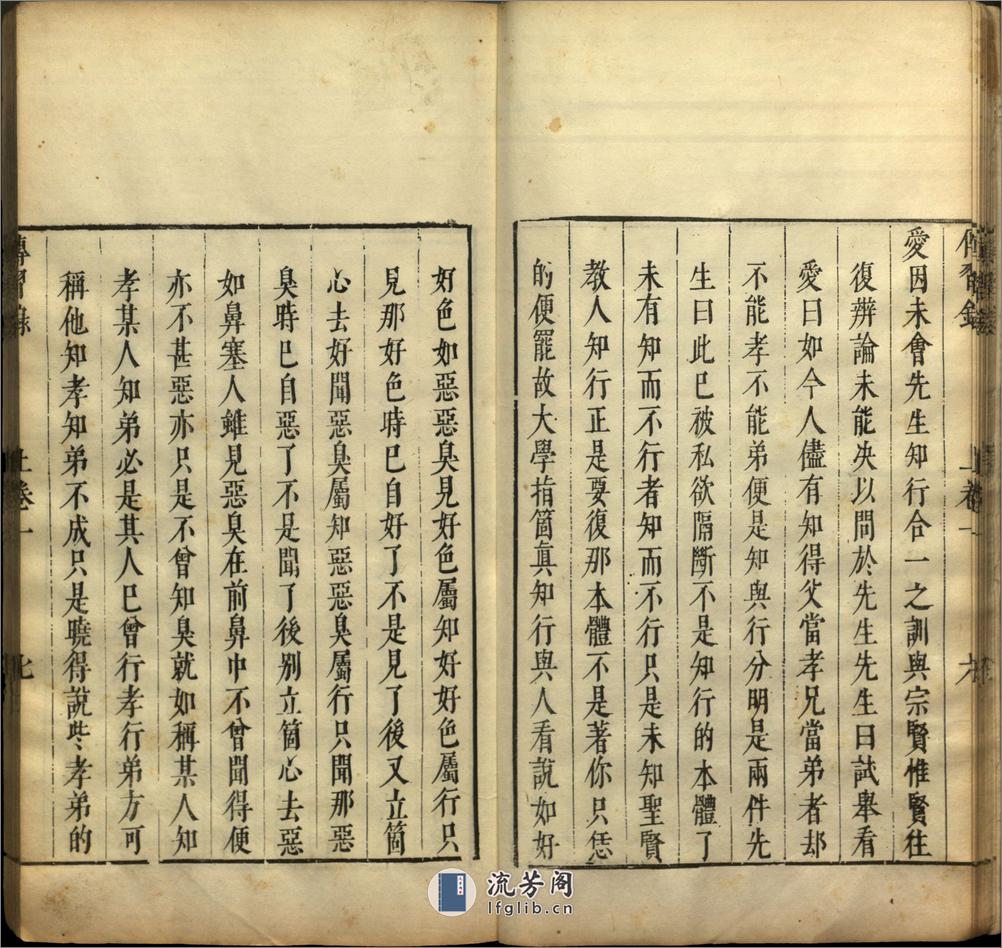 傳習錄 上卷一 六
愛因未會先生知行合一之訓與宗賢惟賢往
復辨論未能决以問於先生先生曰試舉看
愛曰如今人儘有知得父當孝兄當弟者却
不能孝不能弟便是知與行分明是兩件先
生曰此已被私欲隔斷不是知行的本體了
未有知而不行者知而不行只是未知聖賢
教人知行正是要復那本體不是著你只恁
的便罷故大學指箇真知行與人看說如好
好色如惡惡臭見好色屬知好好色屬行只
見那好色時已自好了不是見了後又立箇
心去好聞惡臭屬知惡惡臭屬行只聞那惡
臭時已自惡了不是聞了後别立箇心去惡
如鼻塞人雖見惡臭在前鼻中不曾聞得便
亦不甚惡亦只是不曾知臭就如稱某人知
孝某人知弟必是其人已曾行孝行弟方可
稱他知孝知弟不成只是曉得說些孝弟的
傳習錄 上卷一 七
流芳阁
lfglib.cn